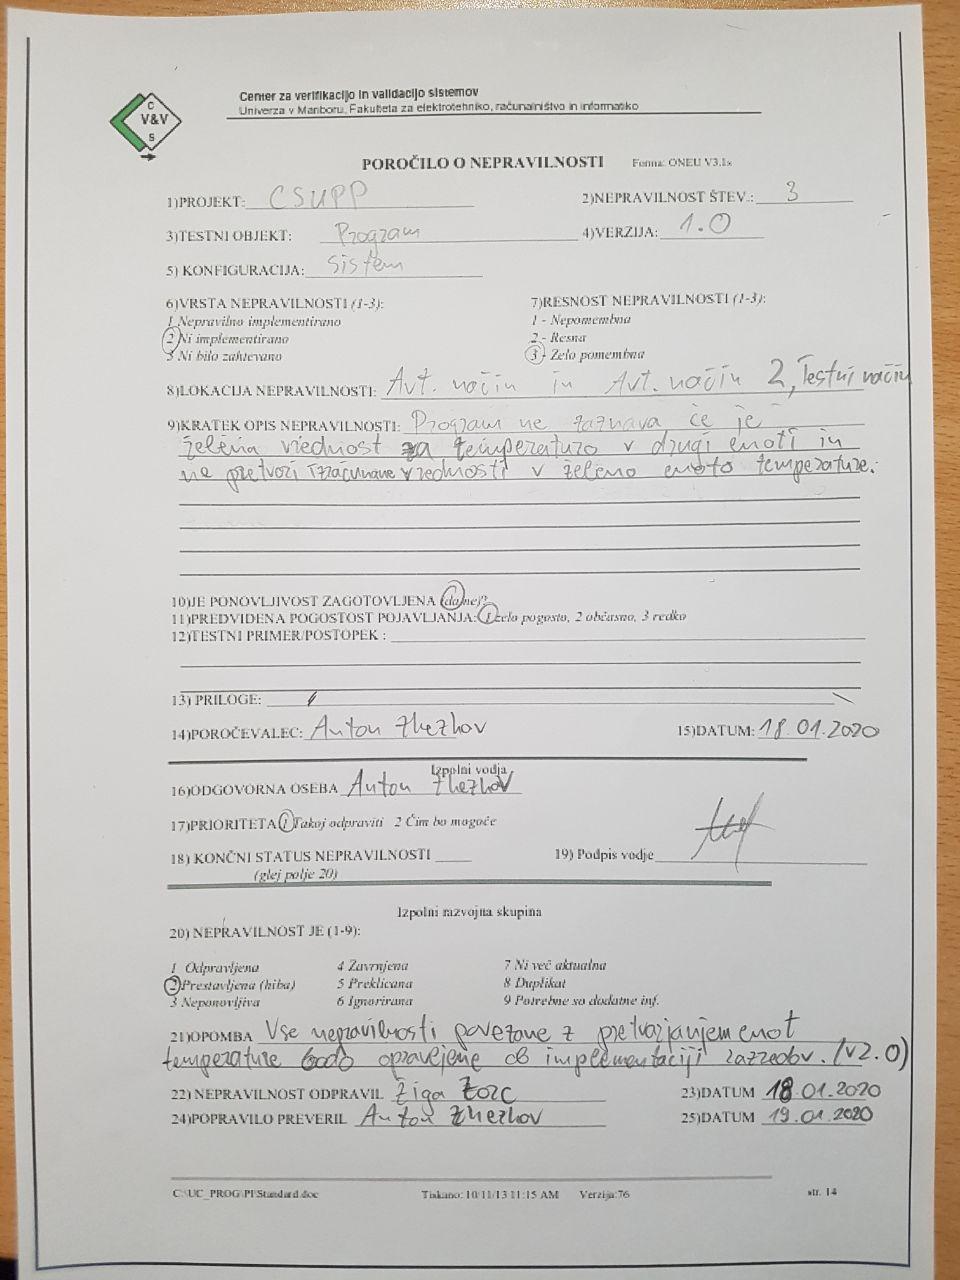 C
V&V
S
Center za verifikacijo in validacijo sistemov
Univerza v Mariboru, Fakulteta za elektrotehniko, računalništvo in informatiko
POROČILO O NEPRAVILNOSTI Forma: ONEU V3.1s
1)PROJEKT: CSUPP 2)NEPRAVILNOST ŠTEV.: 3
3)TESTNI OBJEKT: Program 4)VERZIJA: 1.0
5) KONFIGURACIJA: sistem
6)VRSTA NEPRAVILNOSTI (1-3): 7)RESNOST NEPRAVILNOSTI (1-3):
1 Nepravilno implementirano 1 - Nepomembna
2 Ni implementirano 2 - Resna
3 Ni bilo zahtevano 3 - Zelo pomembna
8)LOKACIJA NEPRAVILNOSTI: Avt. način in Avt. način 2, Testni način
9)KRATEK OPIS NEPRAVILNOSTI: Program ne zaznava če je
želena vrednost za temperaturo v drugi enoti in
ne pretvori izračunane vrednosti v želeno enoto temperature.
10)JE PONOVLJIVOST ZAGOTOVLJENA (da/ne)?
11)PREDVIDENA POGOSTOST POJAVLJANJA: 1 zelo pogosto, 2 občasno, 3 redko
12)TESTNI PRIMER/POSTOPEK :
13) PRILOGE:
14)POROČEVALEC: Anton Zhezhov 15)DATUM: 18.01.2020
Izpolni vodja
16)ODGOVORNA OSEBA Anton Zhezhov
17)PRIORITETA 1 Takoj odpraviti 2 Čim bo mogoče
18) KONČNI STATUS NEPRAVILNOSTI 19) Podpis vodje
(glej polje 20)
Izpolni razvojna skupina
20) NEPRAVILNOST JE (1-9):
1 Odpravljena 4 Zavrnjena 7 Ni več aktualna
2 Prestavljena (hiba) 5 Preklicana 8 Duplikat
3 Neponovljiva 6 Ignorirana 9 Potrebne so dodatne inf.
21)OPOMBA Vse nepravilnosti povezane z pretvarjanjem enot
temperature bodo opravljene ob implementaciji razredov. (v2.0)
22) NEPRAVILNOST ODPRAVIL Žiga Zorc 23)DATUM 18.01.2020
24)POPRAVILO PREVERIL Anton Zhezhov 25)DATUM 19.01.2020
C:\UC_PROG\PI\Standard.doc Tiskano: 10/11/13 11:15 AM Verzija:76 str. 14